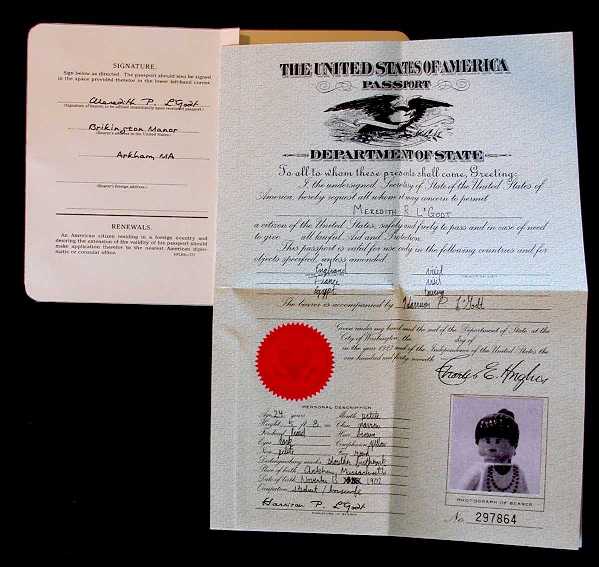 SIGNATURE.
Sign below as directed. The passport should also be signed
in the space provided therefor in the lower left-hand corner.
Meredith P. L'Godt
Brikington Manor
(Bearer's address in the United States.)
Arkham, MA
(Bearer's foreign address.)
RENEWALS.
An American citizen residing in a foreign country and
desiring the extension of the validity of his passport should
make application therefor to the nearest American diplo-
matic or consular office.
THE UNITED STATES OF AMERICA
PASSPORT
DEPARTMENT OF STATE
To all to whom these presents shall come, Greeting:
I, the undersigned, Secretary of State of the United States of
America, hereby request all whom it may concern to permit
MEREDITH P. L'GODT
a citizen of the United States, safely and freely to pass and in case of need
to give all lawful Aid and Protection.
This passport is valid for use only in the following countries and for
objects specified, unless amended.
England visit
France visit
Egypt
The bearer is accompanied by Harrison P. L'Godt
Given under my hand and the seal of the Department of State at the
City of Washington, the day of
in the year 1927 and of the Independence of the United States the
one hundred and forty
Charles E. Hughes
PERSONAL DESCRIPTION
Age 24 years Mouth petite
Height Chin narrow
Forehead Hair brown
Eyes Complexion
Nose petite Face
Distinguishing marks
Place of birth Arkham, Massachusetts
Date of birth 1902
Occupation student
Harrison P. L'Godt
PHOTOGRAPH OF BEARER
No. 297864